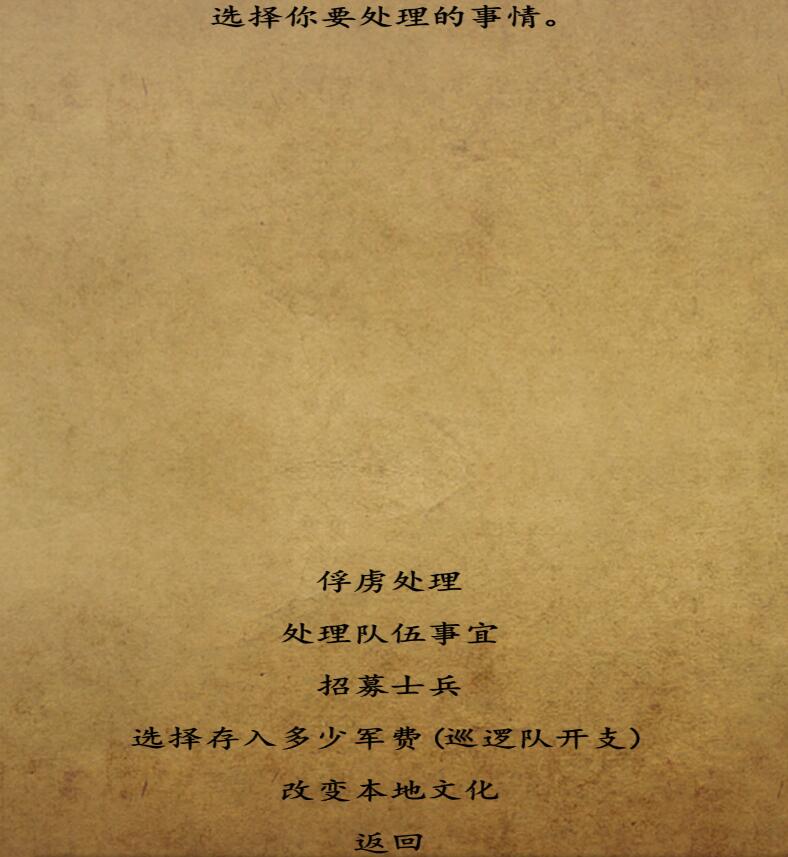 选择你要处理的事情。
俘虏处理
处理队伍事宜
招募士兵
选择存入多少军费(巡逻队开支)
改变本地文化
返回